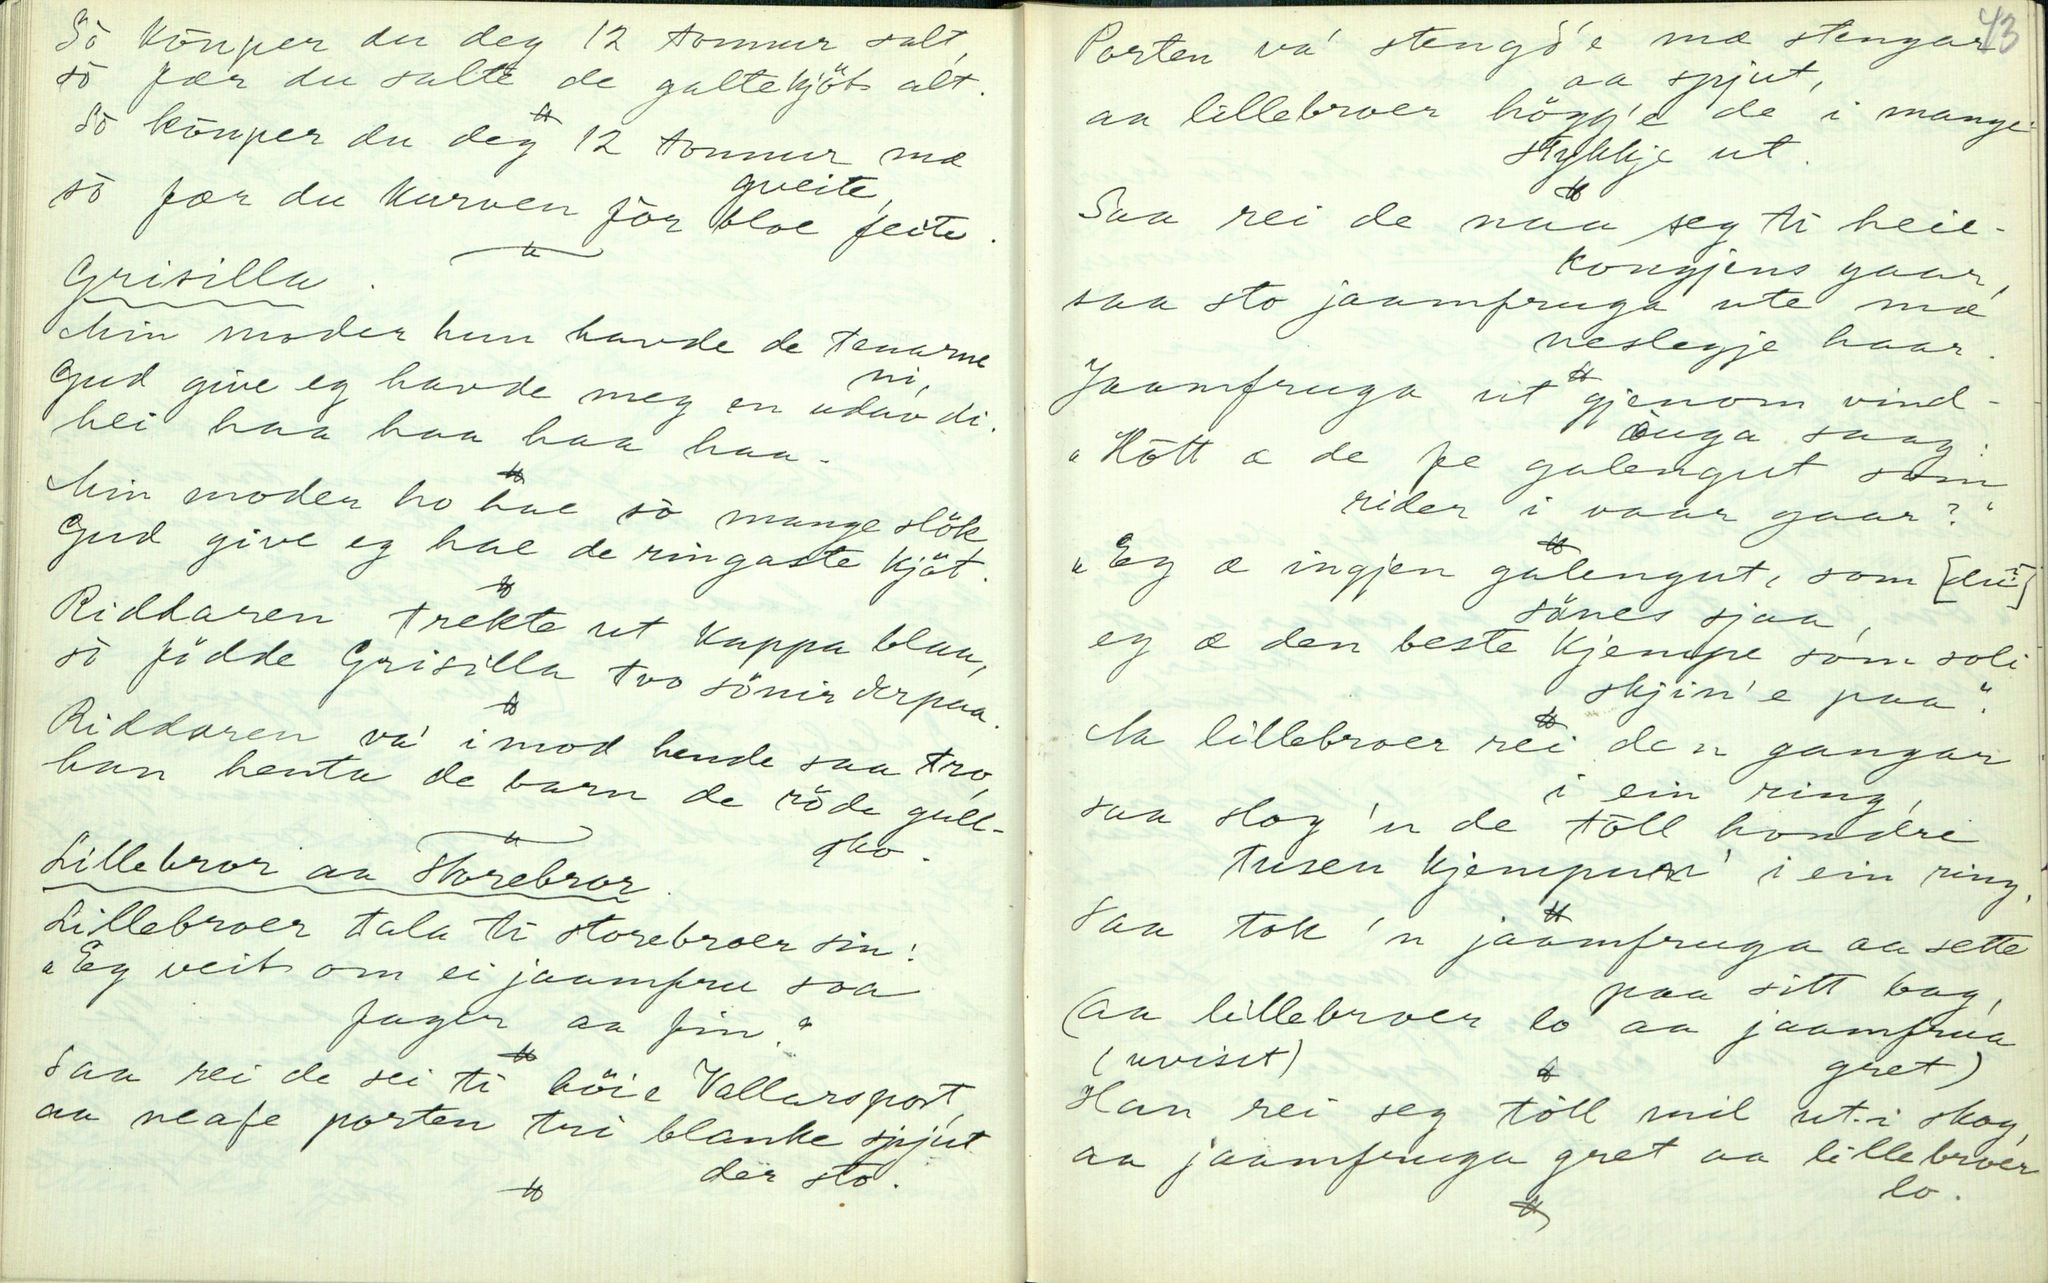 Sō kōuper du deg 12 tonnur salt,
sō fær du salte de galtekjöt alt.
Sō kōuper du deg 12 tonnur mæ
gveite,
sō fær du kurven för bloe feite.
Grisilla.
Min moder hun havde de tenarne
ni,
Gud give eg havde meg en udav di.
hei haa haa haa haa.
Min moder ho hae sō mange slök
Gud give eg hae de ringaste kjöt.
Riddaren trekte ut kappa blaa,
sō födde Grisilla tvo sönir derpaa.
Riddaren va' imod hende saa tro,
han henta de barn de röde gull-
sko.
Lillebror aa Storebror.
Lillebroer tala ti storebroer sin:
"Eg veit om ei jaamfru saa
fager aa fin."
Saa rei de sei ti höie Vallarsport,
aa neafe porten tri blanke spjut
der sto.
43
Porten va' stengd'e mæ stengar
aa spjut,
aa lillebroer högg'e de i mange
stykkje ut.
Saa rei de naa seg ti heile-
kongjens gaar,
saa sto jaamfruga ute mæ
neslegje haar.
Jaamfruga ut gjenom vind-
öuga saag:
"Kōtt æ de fe galengut som
rider i vaar gaar?"
"Eg æ ingjen galengut, som [du?]
sönes sjaa,
eg æ den beste kjempe som soli
skjin'e paa".
Aa lillebroer rei den gangar
i ein ring,
saa slog 'n de töll hondre
tusen kjempur i ein ring.
Saa tok 'n jaamfruga aa sette
paa sitt bag,
(aa lillebroer lo aa jaamfrua
(uvisst) gret)
Han rei seg töll mil ut i skog,
aa jaamfruga gret aa lillebroer
lo.